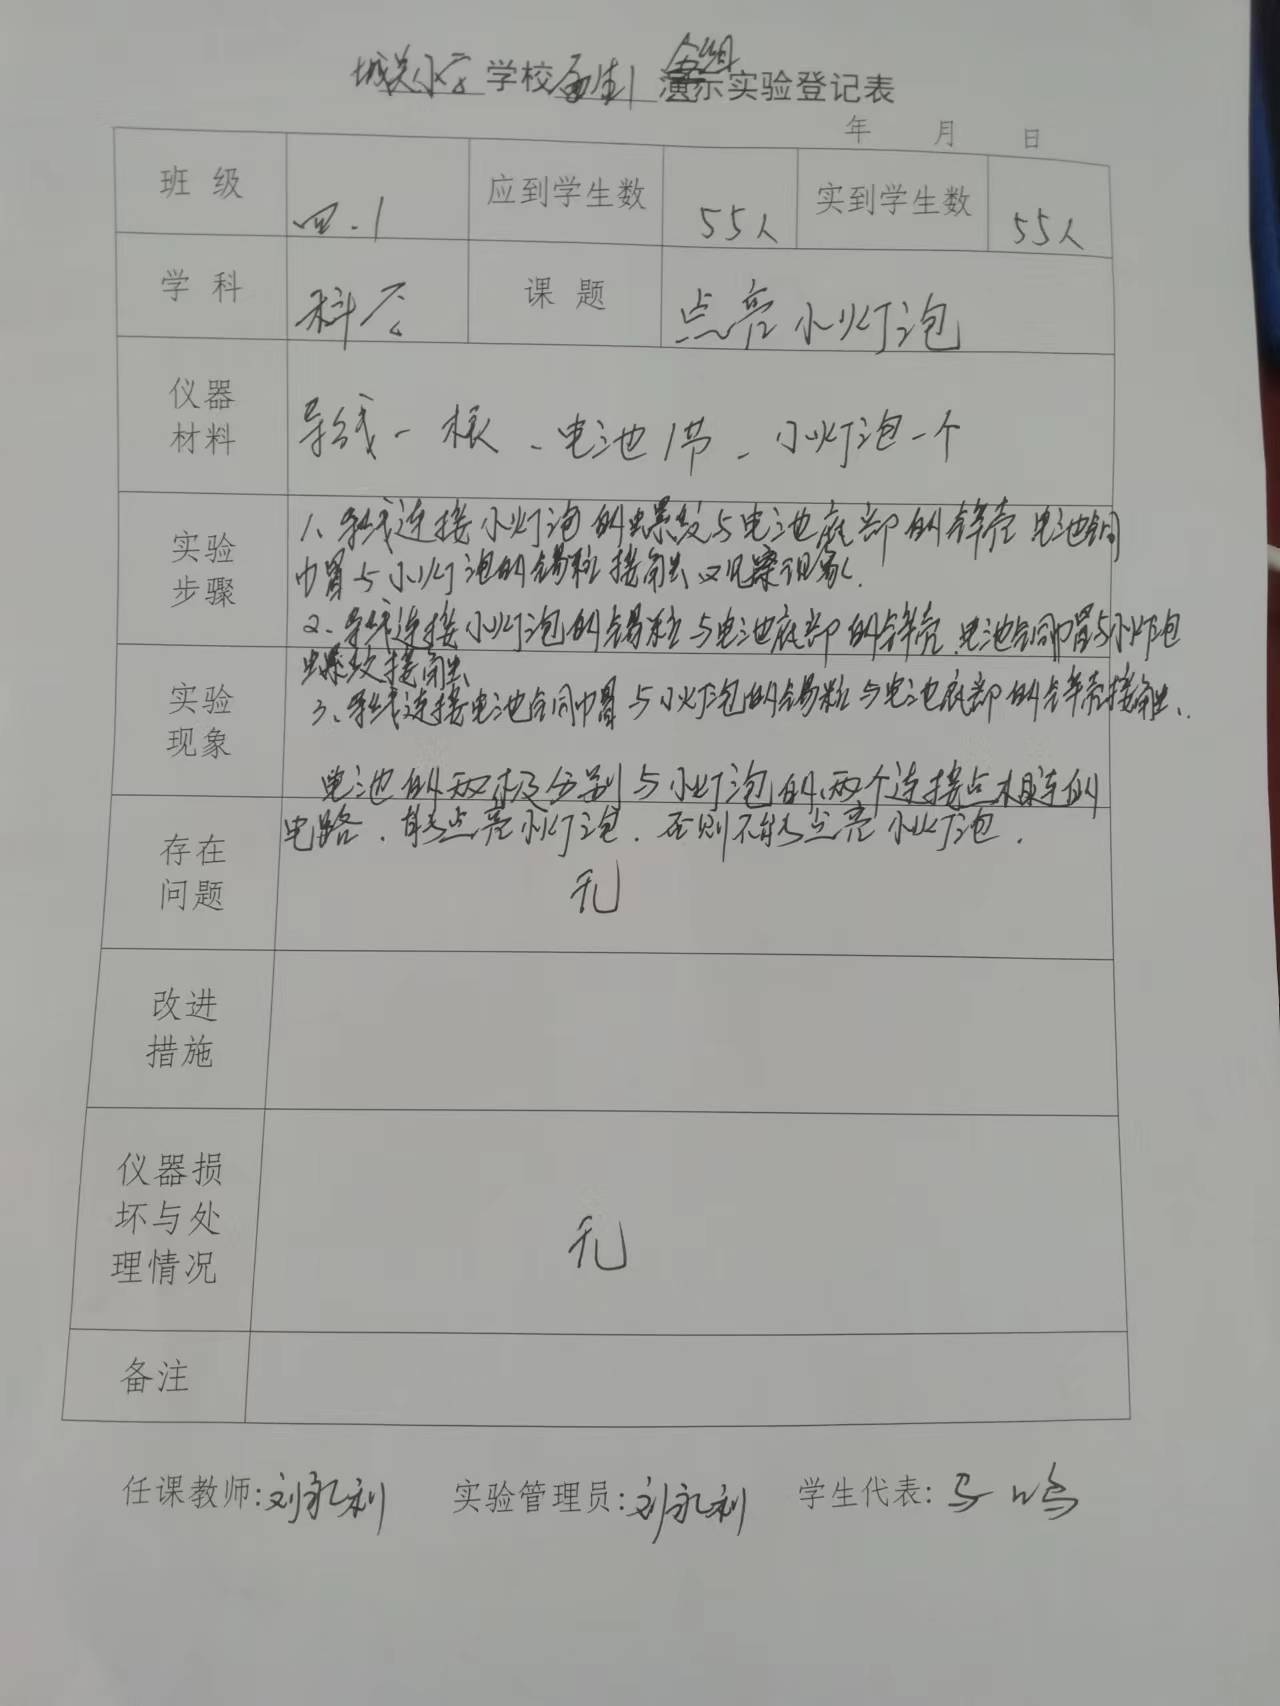 城关小学 学校 师生 分组
演示实验登记表
年 月 日
班 级 四.1 应到学生数 55人 实到学生数 55人
学 科 科学 课 题 点亮小灯泡
仪器
材料
导线一根、电池1节、小灯泡一个
实验
步骤
1、导线连接小灯泡的螺纹与电池底部的锌壳 电池铜
帽与小灯泡的锡粒接触，观察现象.
2、导线连接小灯泡的锡粒与电池底部的锌壳、电池铜帽与小灯泡
螺纹接触
实验
现象
3、导线连接电池铜帽与小灯泡的锡粒与电池底部的锌壳接触、
电池的两极分别与小灯泡的两个连接点相连的
电路、能点亮小灯泡．否则不能点亮小灯泡．
存在
问题
无
改进
措施
仪器损
坏与处
理情况
无
备注
任课教师:刘永利 实验管理员:刘永利 学生代表:马鸣